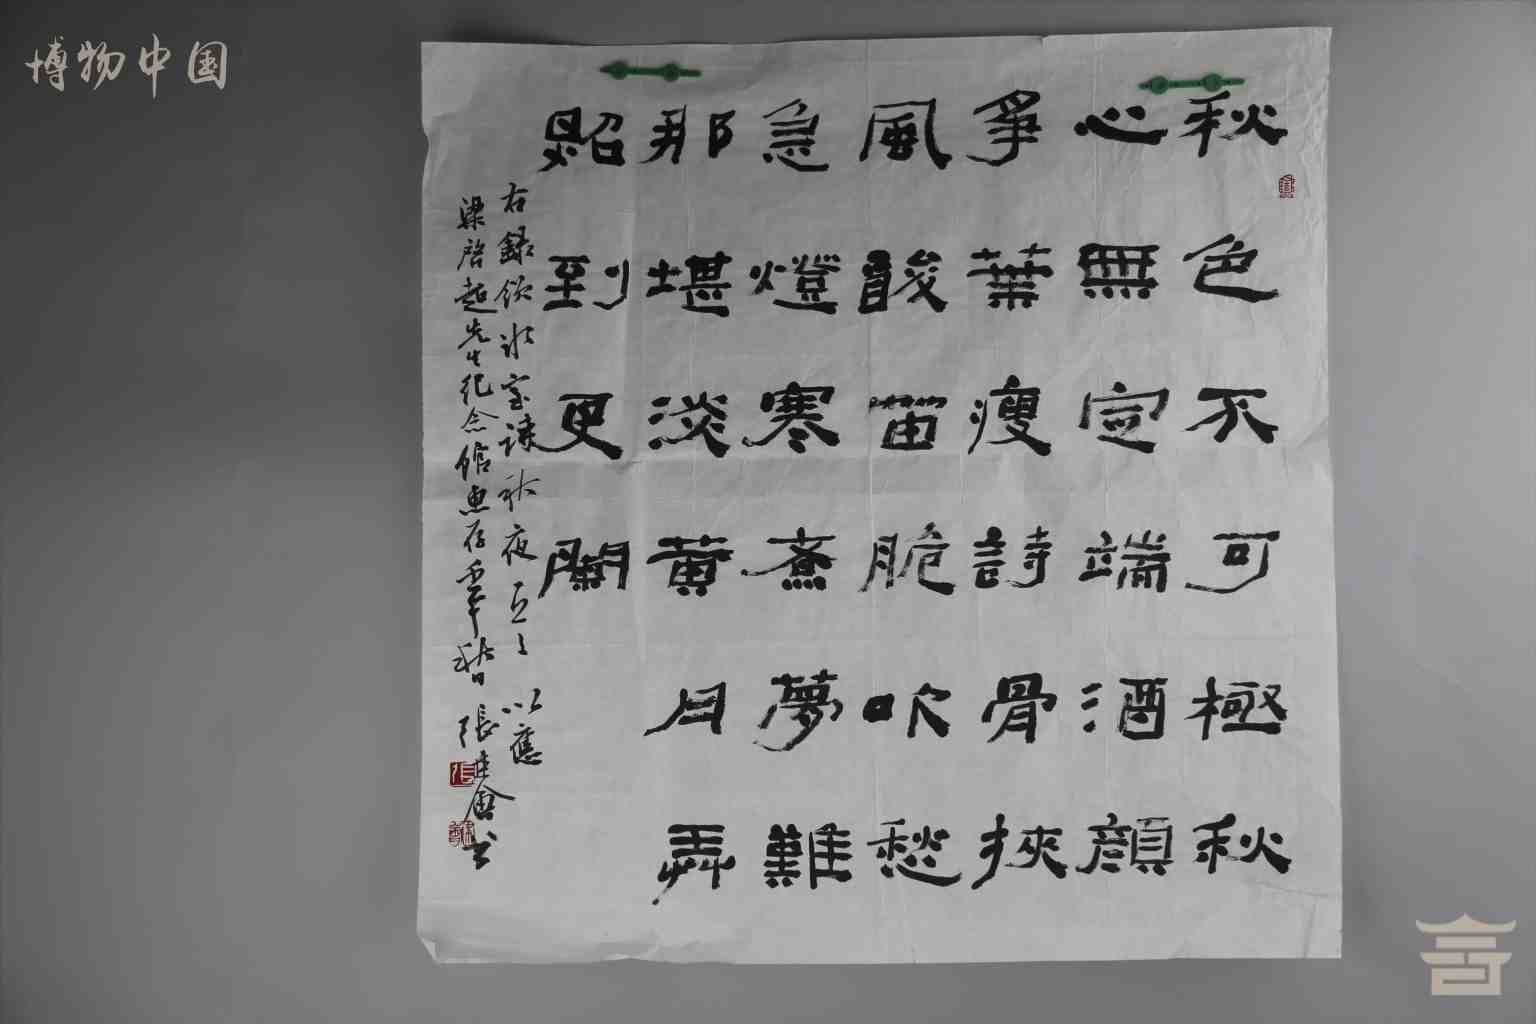 博物中国
秋色不可極秋
心無定端酒顔
爭葉瘦詩骨挾
風酸笛脆吹愁
急燈寒煮夢難
那堪淡黄月再
照到更闌
右録飲冰室詠秋夜 以應
梁啓超先生紀念館惠存 張